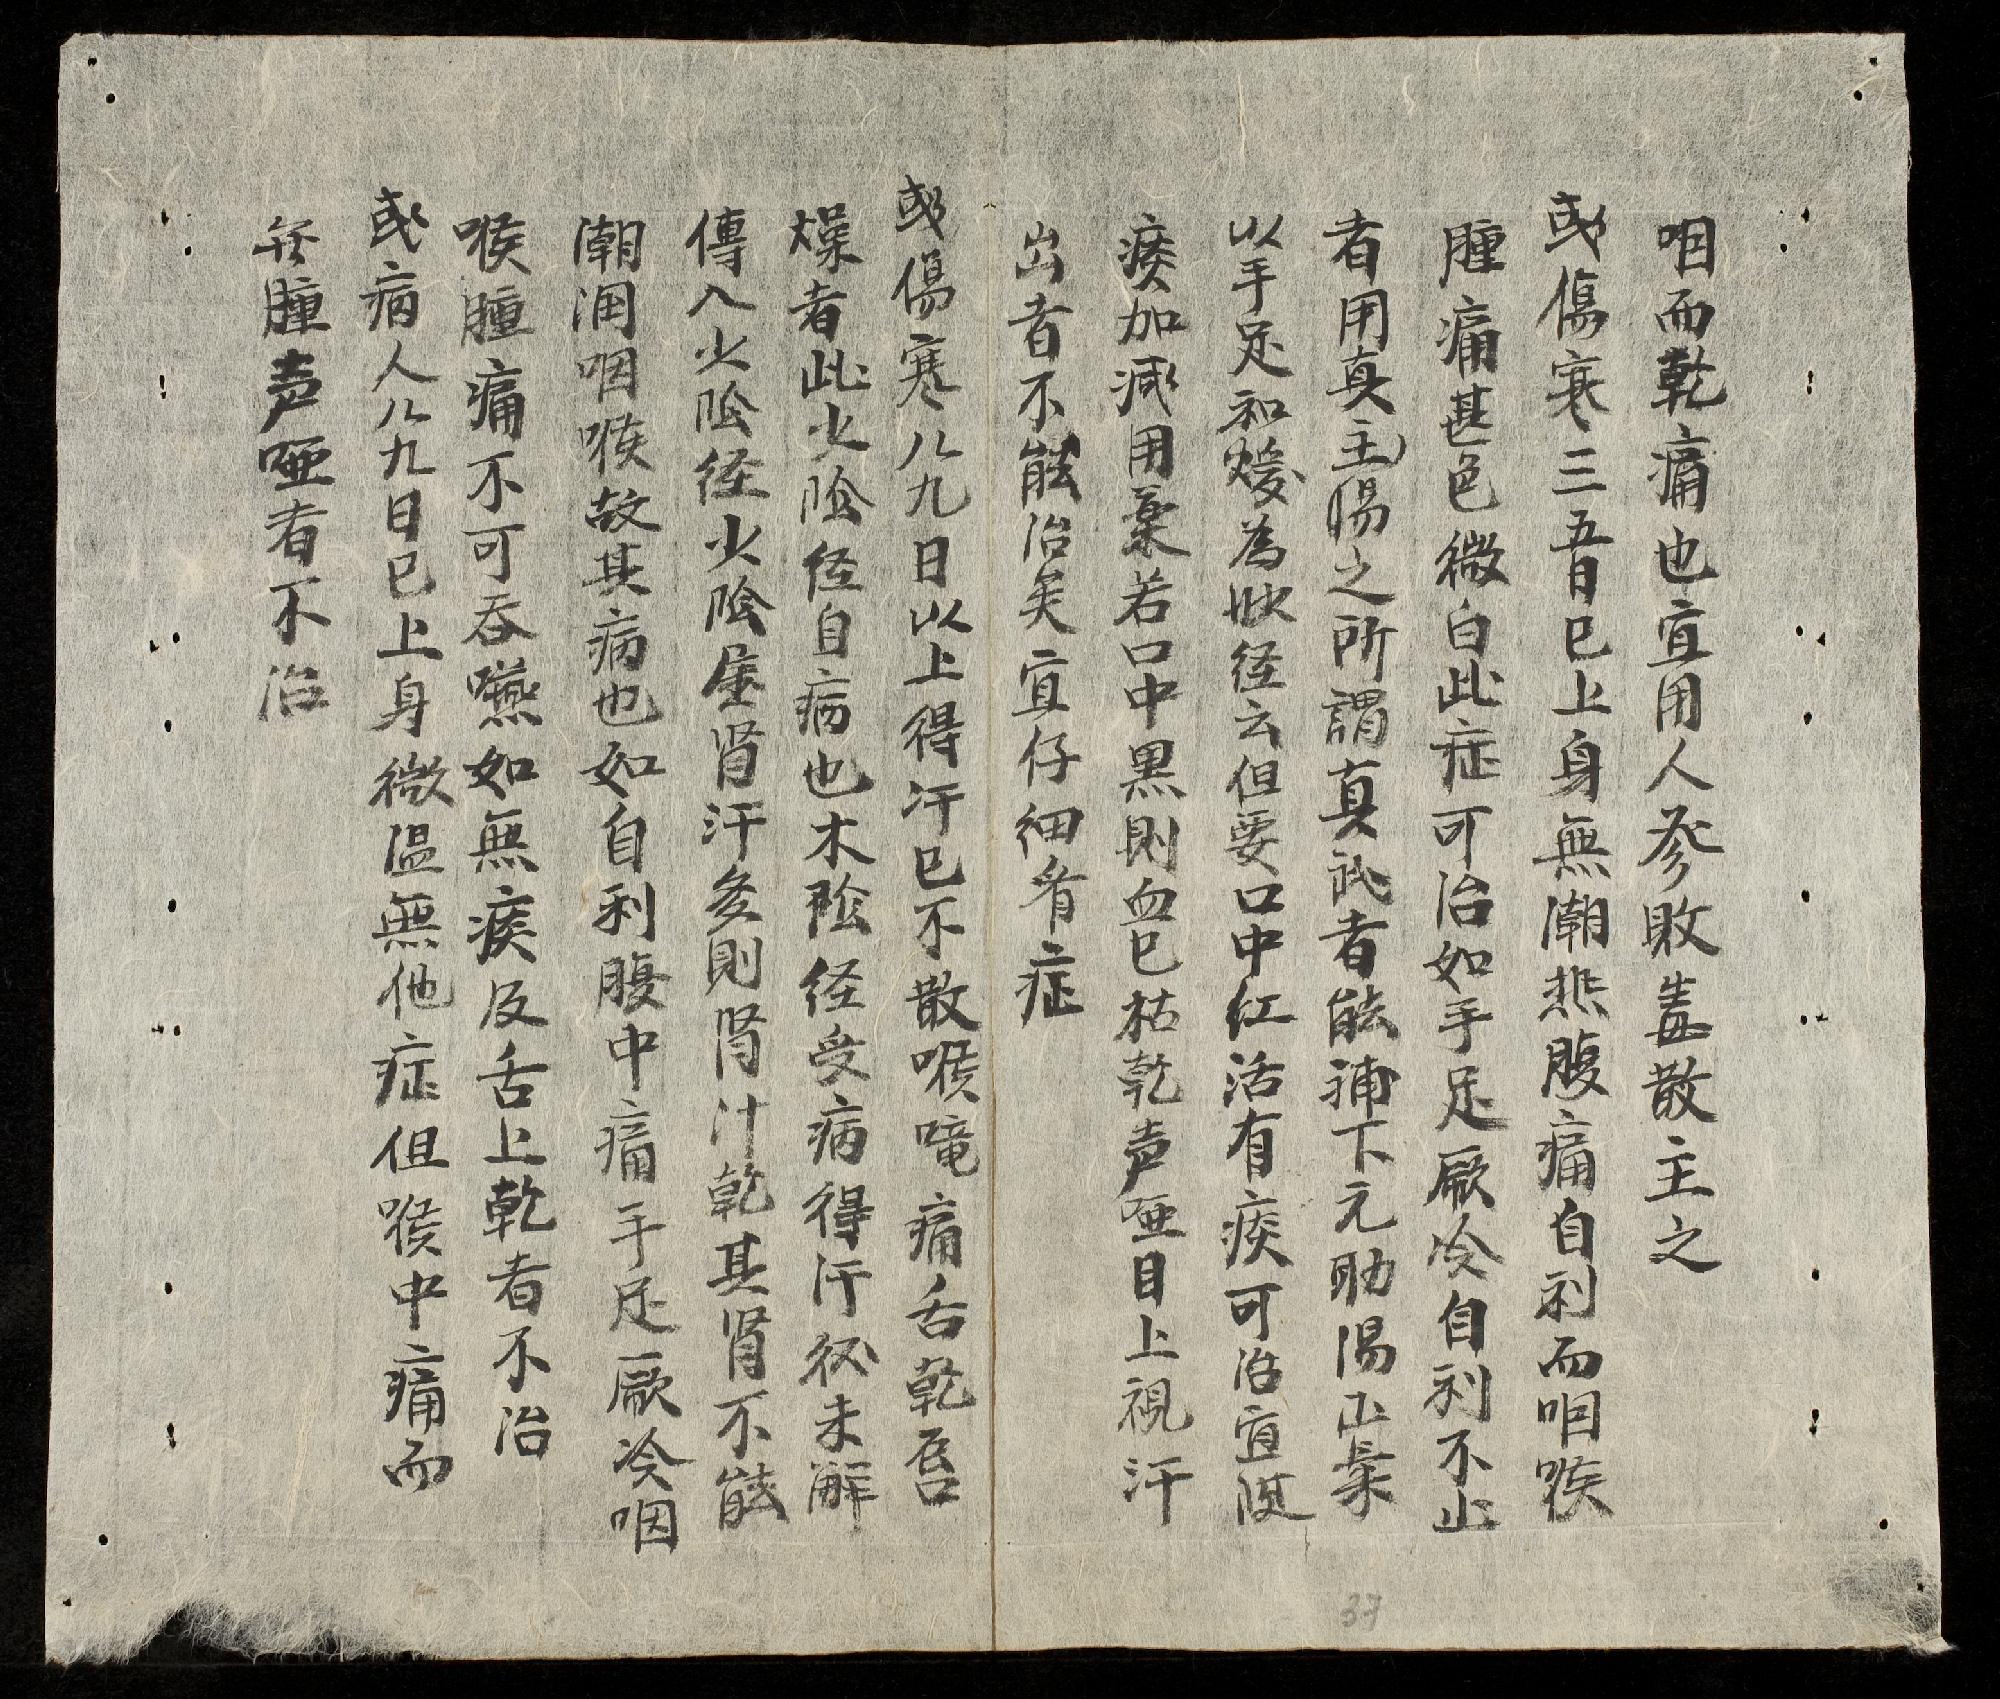 咽而乾痛也宜用人參敗毒散主之
或傷寒三五日已上身無潮热腹痛自利而咽喉
腫痛甚色微白此症可治如手足厥冷自利不止
者用真主陽之所謂真武者能補下元助陽正氣
以手足和煖為妙経云但要口中红活有痰可治宜
痰加减用藥若口中黒則血已枯乾声啞目上視汗
出者不能治矣宜仔细看症
或傷寒八九日以上得汗已不散喉噎痛舌乾唇
燥者此少陰経自病也木陰経受病得汗而未解
傳入少陰経少陰屬肾汗多則肾汁乾其肾不能
潮润咽喉故其病也如自利腹中痛手足厥冷咽
喉腫痛不可吞嚥如無痰及舌上乾者不治
或病人八九日已上身微温無他症但喉中痛而
无腫声啞者不治
37